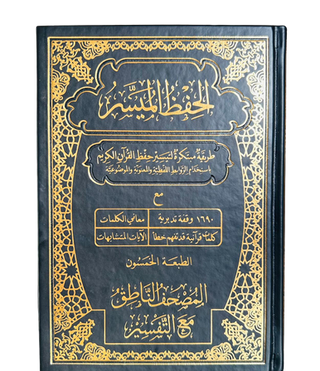 الحفظ الميسر
طريقة مبتكرة لتيسير حفظ القرآن الكريم
باستخدام الروابط اللفظية والمعنوية والموضوعية
مع
١٦٩٠ وقفة تدبرية معاني الكلمات
كلمات قرآنية قد تفهم خطأ الآيات المتشابهات
الطبعة الخمسون
المصحف الناطق
مع التفسير